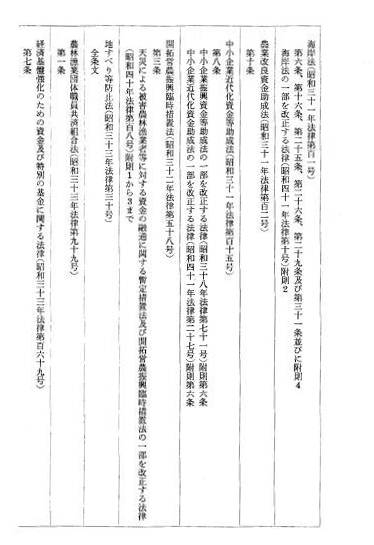 海岸法(昭和三十一年法律第百一号)
第六条、第十六条、第二十五条、第二十六条、第二十九条及び第三十一条並びに附則4
海岸法の一部を改正する法律(昭和四十一年法律第十号)附則2
農業改良資金助成法(昭和三十一年法律第百二号)
第十条
中小企業近代化資金等助成法(昭和三十一年法律第百十五号)
第八条
中小企業振興資金等助成法の一部を改正する法律(昭和三十八年法律第七十一号)附則第六条
中小企業近代化資金助成法の一部を改正する法律(昭和四十一年法律第二十七号)附則第六条
開拓営農振興臨時措置法(昭和三十二年法律第五十八号)
第三条
天災による被害農林漁業者等に対する資金の融通に関する暫定措置法及び開拓営農振興臨時措置法の一部を改正する法律
(昭和四十年法律第百八号)附則1から3まで
地すべり等防止法(昭和三十三年法律第三十号)
全条文
農林漁業団体職員共済組合法(昭和三十三年法律第九十九号)
第一条
経済基盤強化のための資金及び特別の基金に関する法律(昭和三十三年法律第百六十九号)
第七条